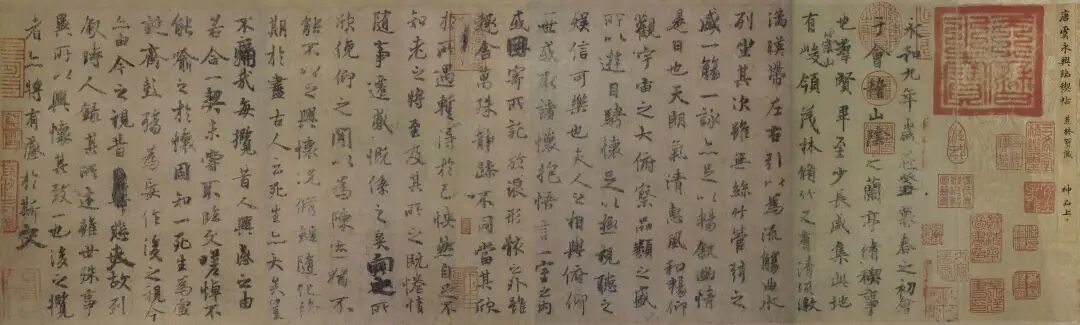 唐虞永興臨禊帖
神品上
永和九年歲在癸丑暮春之初會
于會稽山陰之蘭亭脩禊事
也羣賢畢至少長咸集此地
有崇山峻領茂林脩竹又有清流激
湍暎帶左右引以為流觴曲水
列坐其次雖無絲竹管弦之
盛一觴一詠亦足以暢敘幽情
是日也天朗氣清惠風和暢仰
觀宇宙之大俯察品類之盛
所以遊目騁懷足以極視聽之
娛信可樂也夫人之相與俯仰
一世或取諸懷抱悟言一室之內
或因寄所託放浪形骸之外雖
趣舍萬殊靜躁不同當其欣
於所遇暫得於己怏然自足不
知老之將至及其所之既惓情
隨事遷感慨係之矣向之所
欣俛仰之閒以為陳迹猶不
能不以之興懷況脩短隨化終
期於盡古人云死生亦大矣豈
不痛哉每攬昔人興感之由
若合一契未嘗不臨文嗟悼不
能喻之於懷固知一死生為虛
誕齊彭殤為妄作後之視今
亦由今之視昔悲夫故列
敘時人錄其所述雖世殊事
異所以興懷其致一也後之攬
者亦將有感於斯文